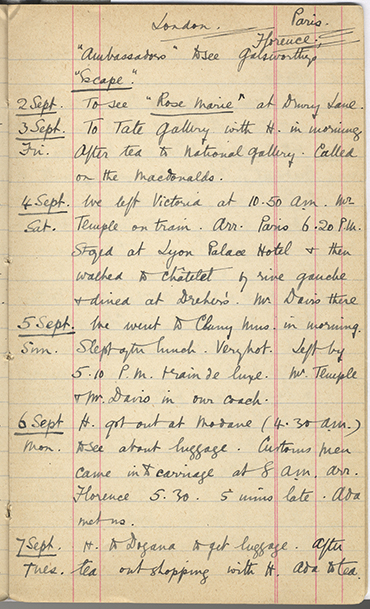 London. Paris.
Florence.
"Ambassadors" to see Galsworthy's
"Escape".
2 Sept. To see "Rose Marie" at Drury Lane.
3 Sept. To Tate Gallery with H. in morning
Fri. After tea to National Gallery. Called
on the Macdonalds.
4 Sept. We left Victoria at 10.50 a.m. Mr
Sat. Temple on train. Arr. Paris 6.20 P.M.
Stayed at Lyon Palace Hotel & then
walked to Châtelet by rive gauche
& dined at Dreher's. Mr Davis there
5 Sept. We went to Cluny Mus. in morning.
Sun. Slept after lunch. Very hot. Left by
5.10 P.M. train de luxe. Mr. Temple
& Mr. Davis in our coach.
6 Sept H. got out at Modane (4.30 a.m.)
Mon. to see about luggage. Customs men
came into carriage at 8 a.m. arr.
Florence 5.30. 5 mins late. Ada
met us.
7 Sept. H. to Dogana to get luggage. After
Tues. tea out shopping with H. Ada to tea.